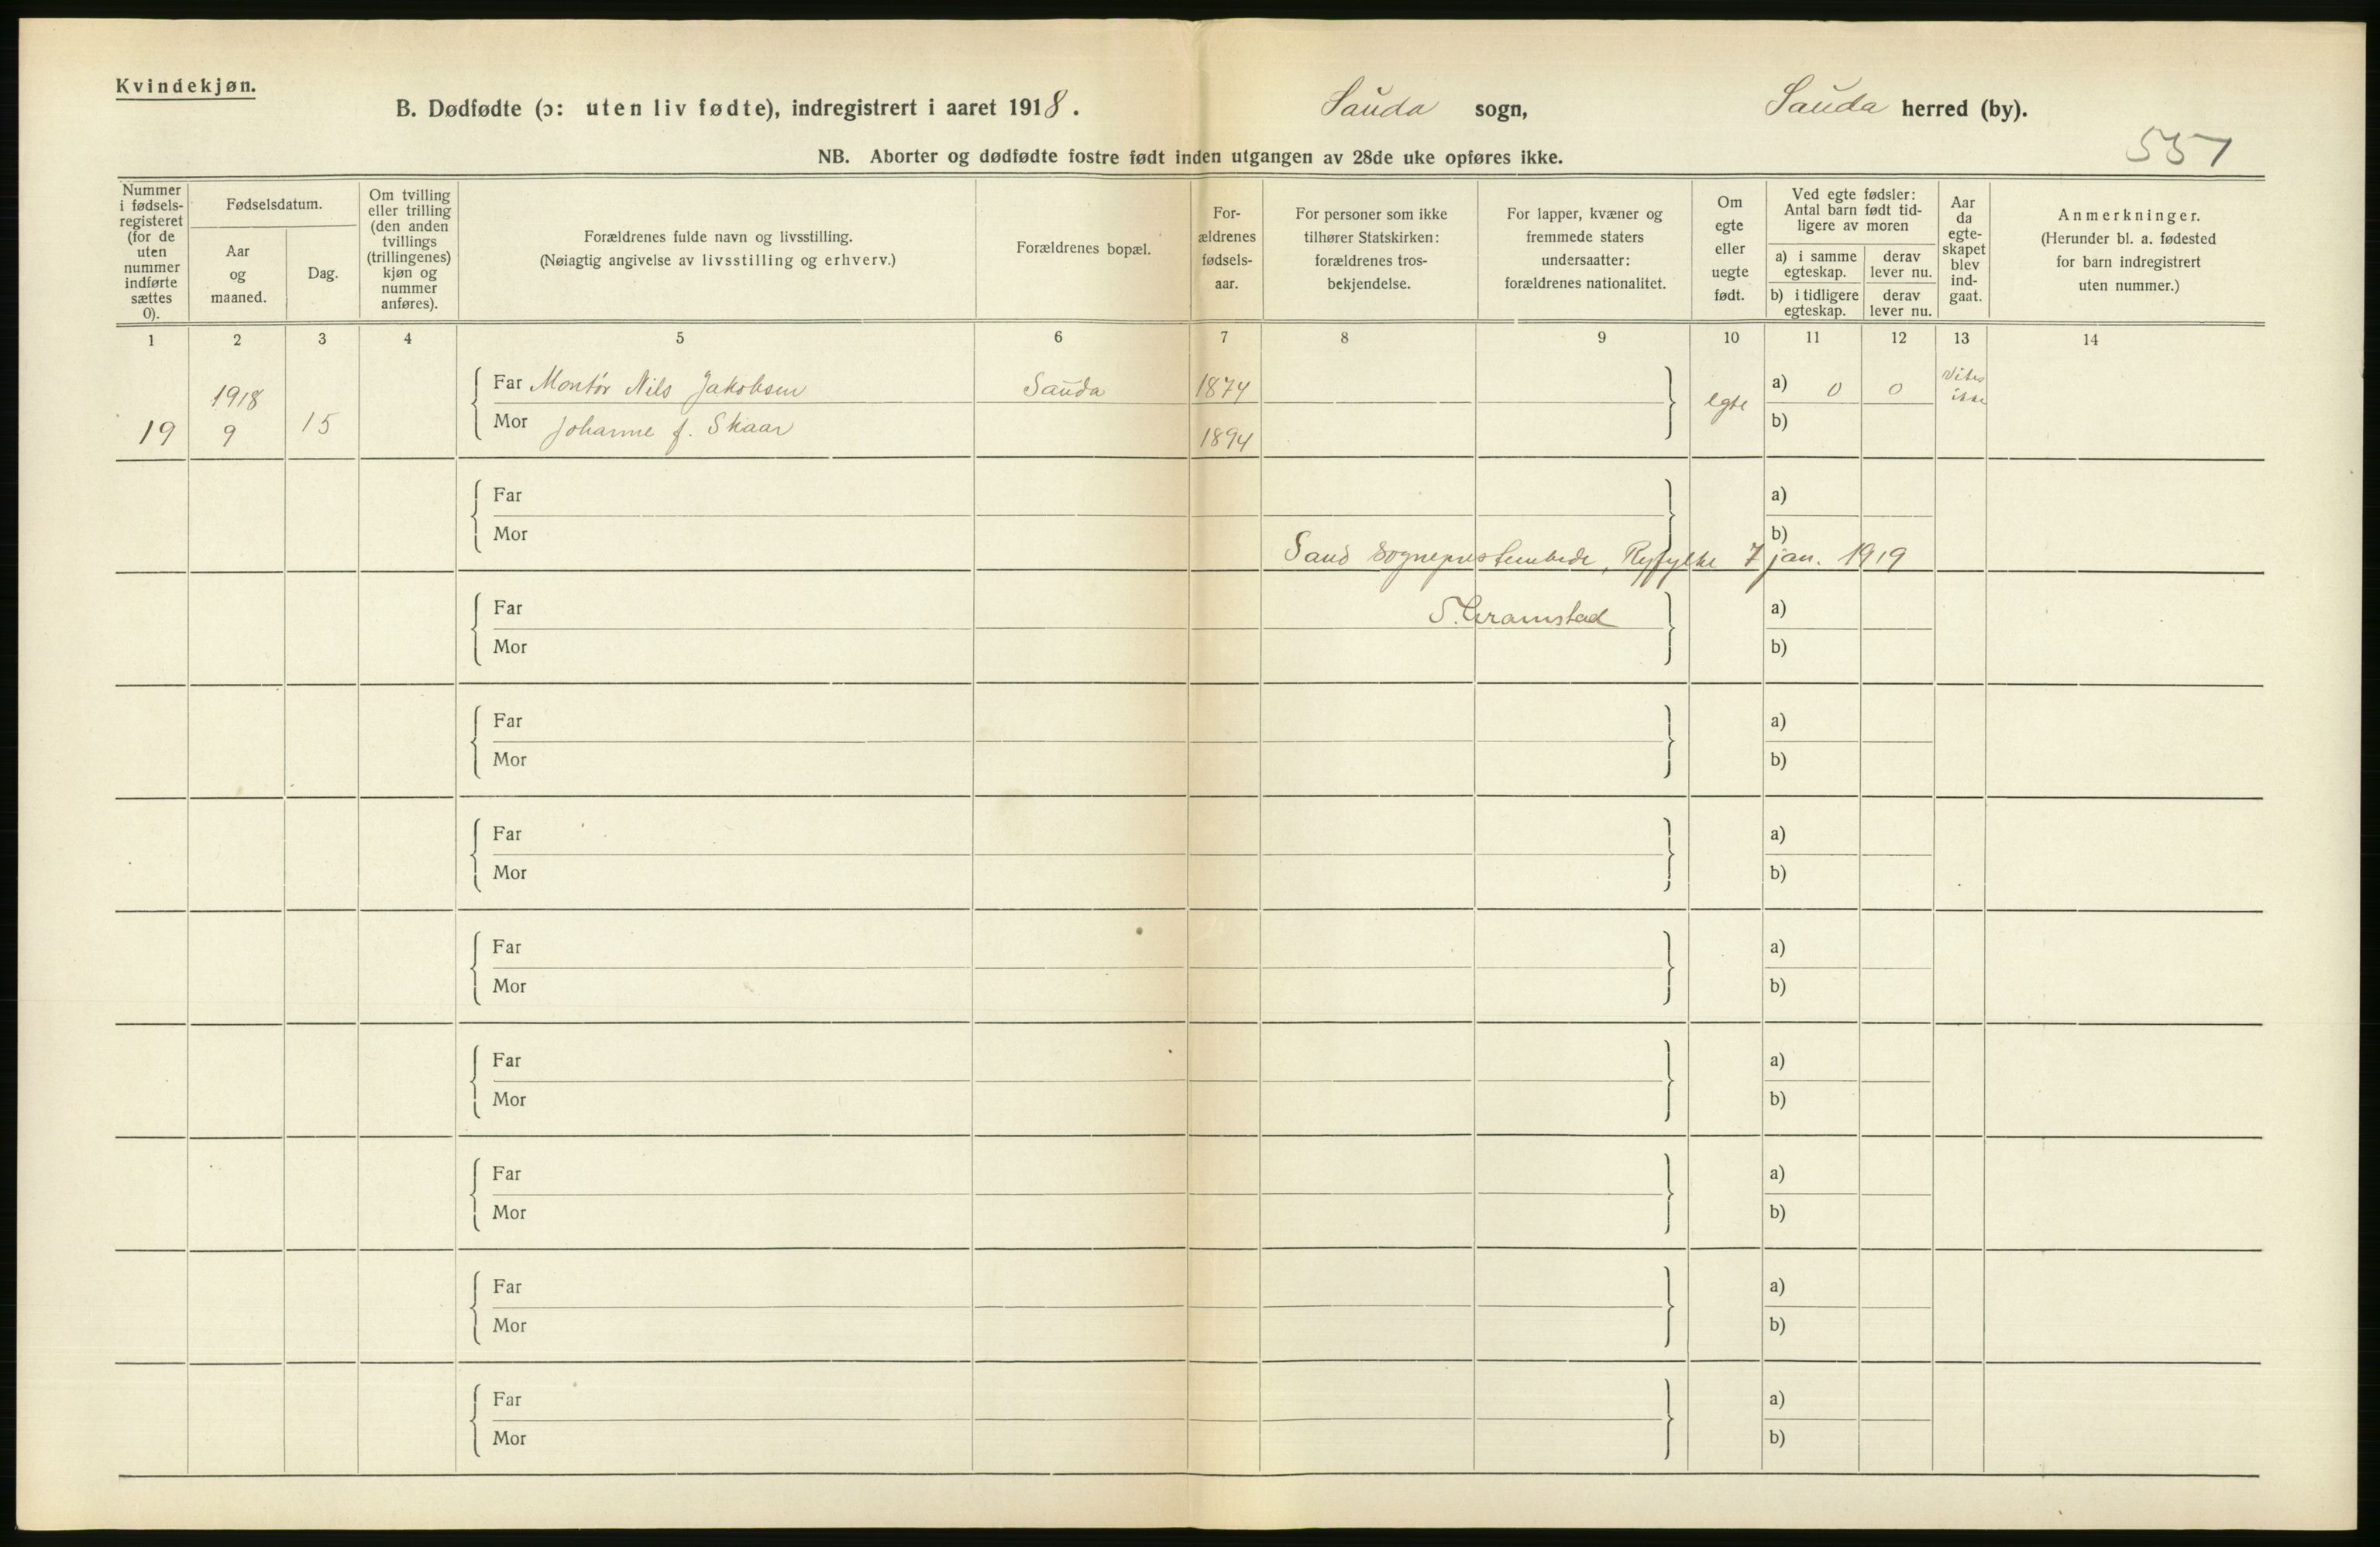 Kvindekjøn.
B. Dødfødte (ɔ: uten liv fødte), indregistrert i aaret 1918. Sauda sogn, Sauda herred (by).
551
NB. Aborter og dødfødte fostre født inden utgangen av 28de uke opføres ikke.
Nummer i fødsels-registeret (for de uten nummer indførte sættes 0).
Fødselsdatum.
Aar og maaned.
Dag.
Om tvilling eller trilling (den anden tvillings (trillingenes) kjøn og nummer anføres).
Forældrenes fulde navn og livsstilling.
(Nøiagtig angivelse av livsstilling og erhverv.)
Forældrenes bopæl.
For-ældrenes fødsels-aar.
For personer som ikke tilhører Statskirken: forældrenes tros-bekjendelse.
For lapper, kvæner og fremmede staters undersaatter: forældrenes nationalitet.
Om egte eller uegte født.
Ved egte fødsler: Antal barn født tid-ligere av moren
a) i samme egteskap.
derav lever nu.
b) i tidligere egteskap.
derav lever nu.
Aar da egte-skapet blev ind-gaat.
Anmerkninger.
(Herunder bl. a. fødested for barn indregistrert uten nummer.)
1 2 3 4 5 6 7 8 9 10 11 12 13 14
19 1918 9 15 Far Montør Nils Jakobsen Sauda 1874 egte a) 0 0 Vites ikke
Mor Johanne f. Skaar 1894 b)
Far a)
Mor b)
Sand sogneprestembede, Ryfylke 7 jan. 1919
Far a)
Mor b)
Far a)
Mor b)
Far a)
Mor b)
Far a)
Mor b)
Far a)
Mor b)
Far a)
Mor b)
Far a)
Mor b)
Far a)
Mor b)